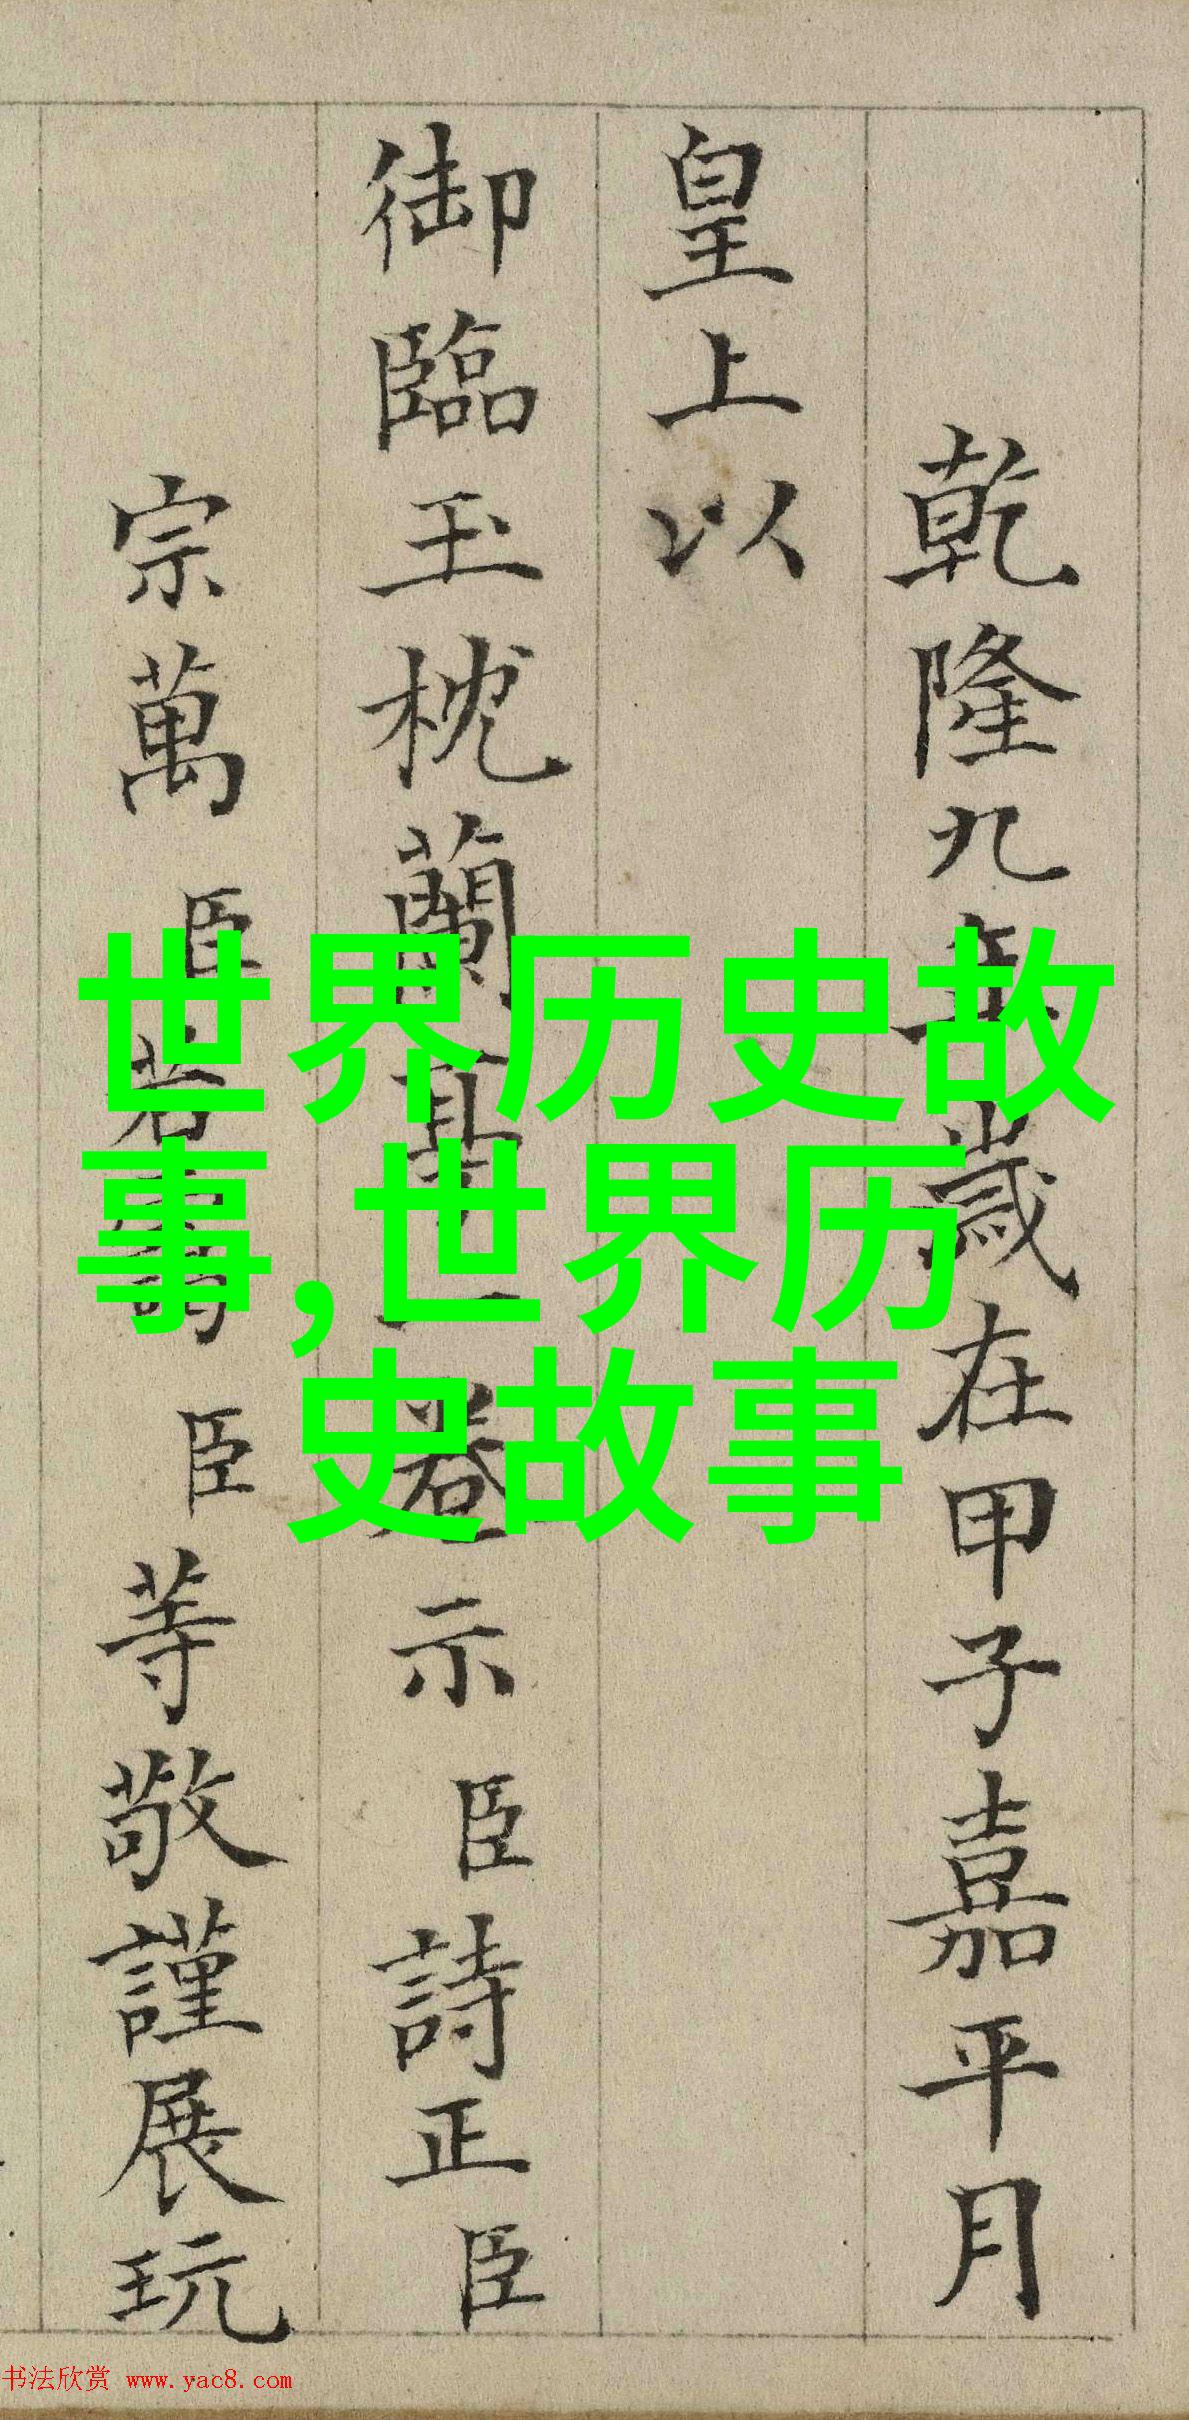 乾隆九年歲在甲子嘉平月
皇上以
御臨玉枕蘭亭一卷示臣詩正臣
宗萬臣若靄臣等敬謹展玩
世界历史故
事,世界历
史故事
书法欣赏 www.yac8.com